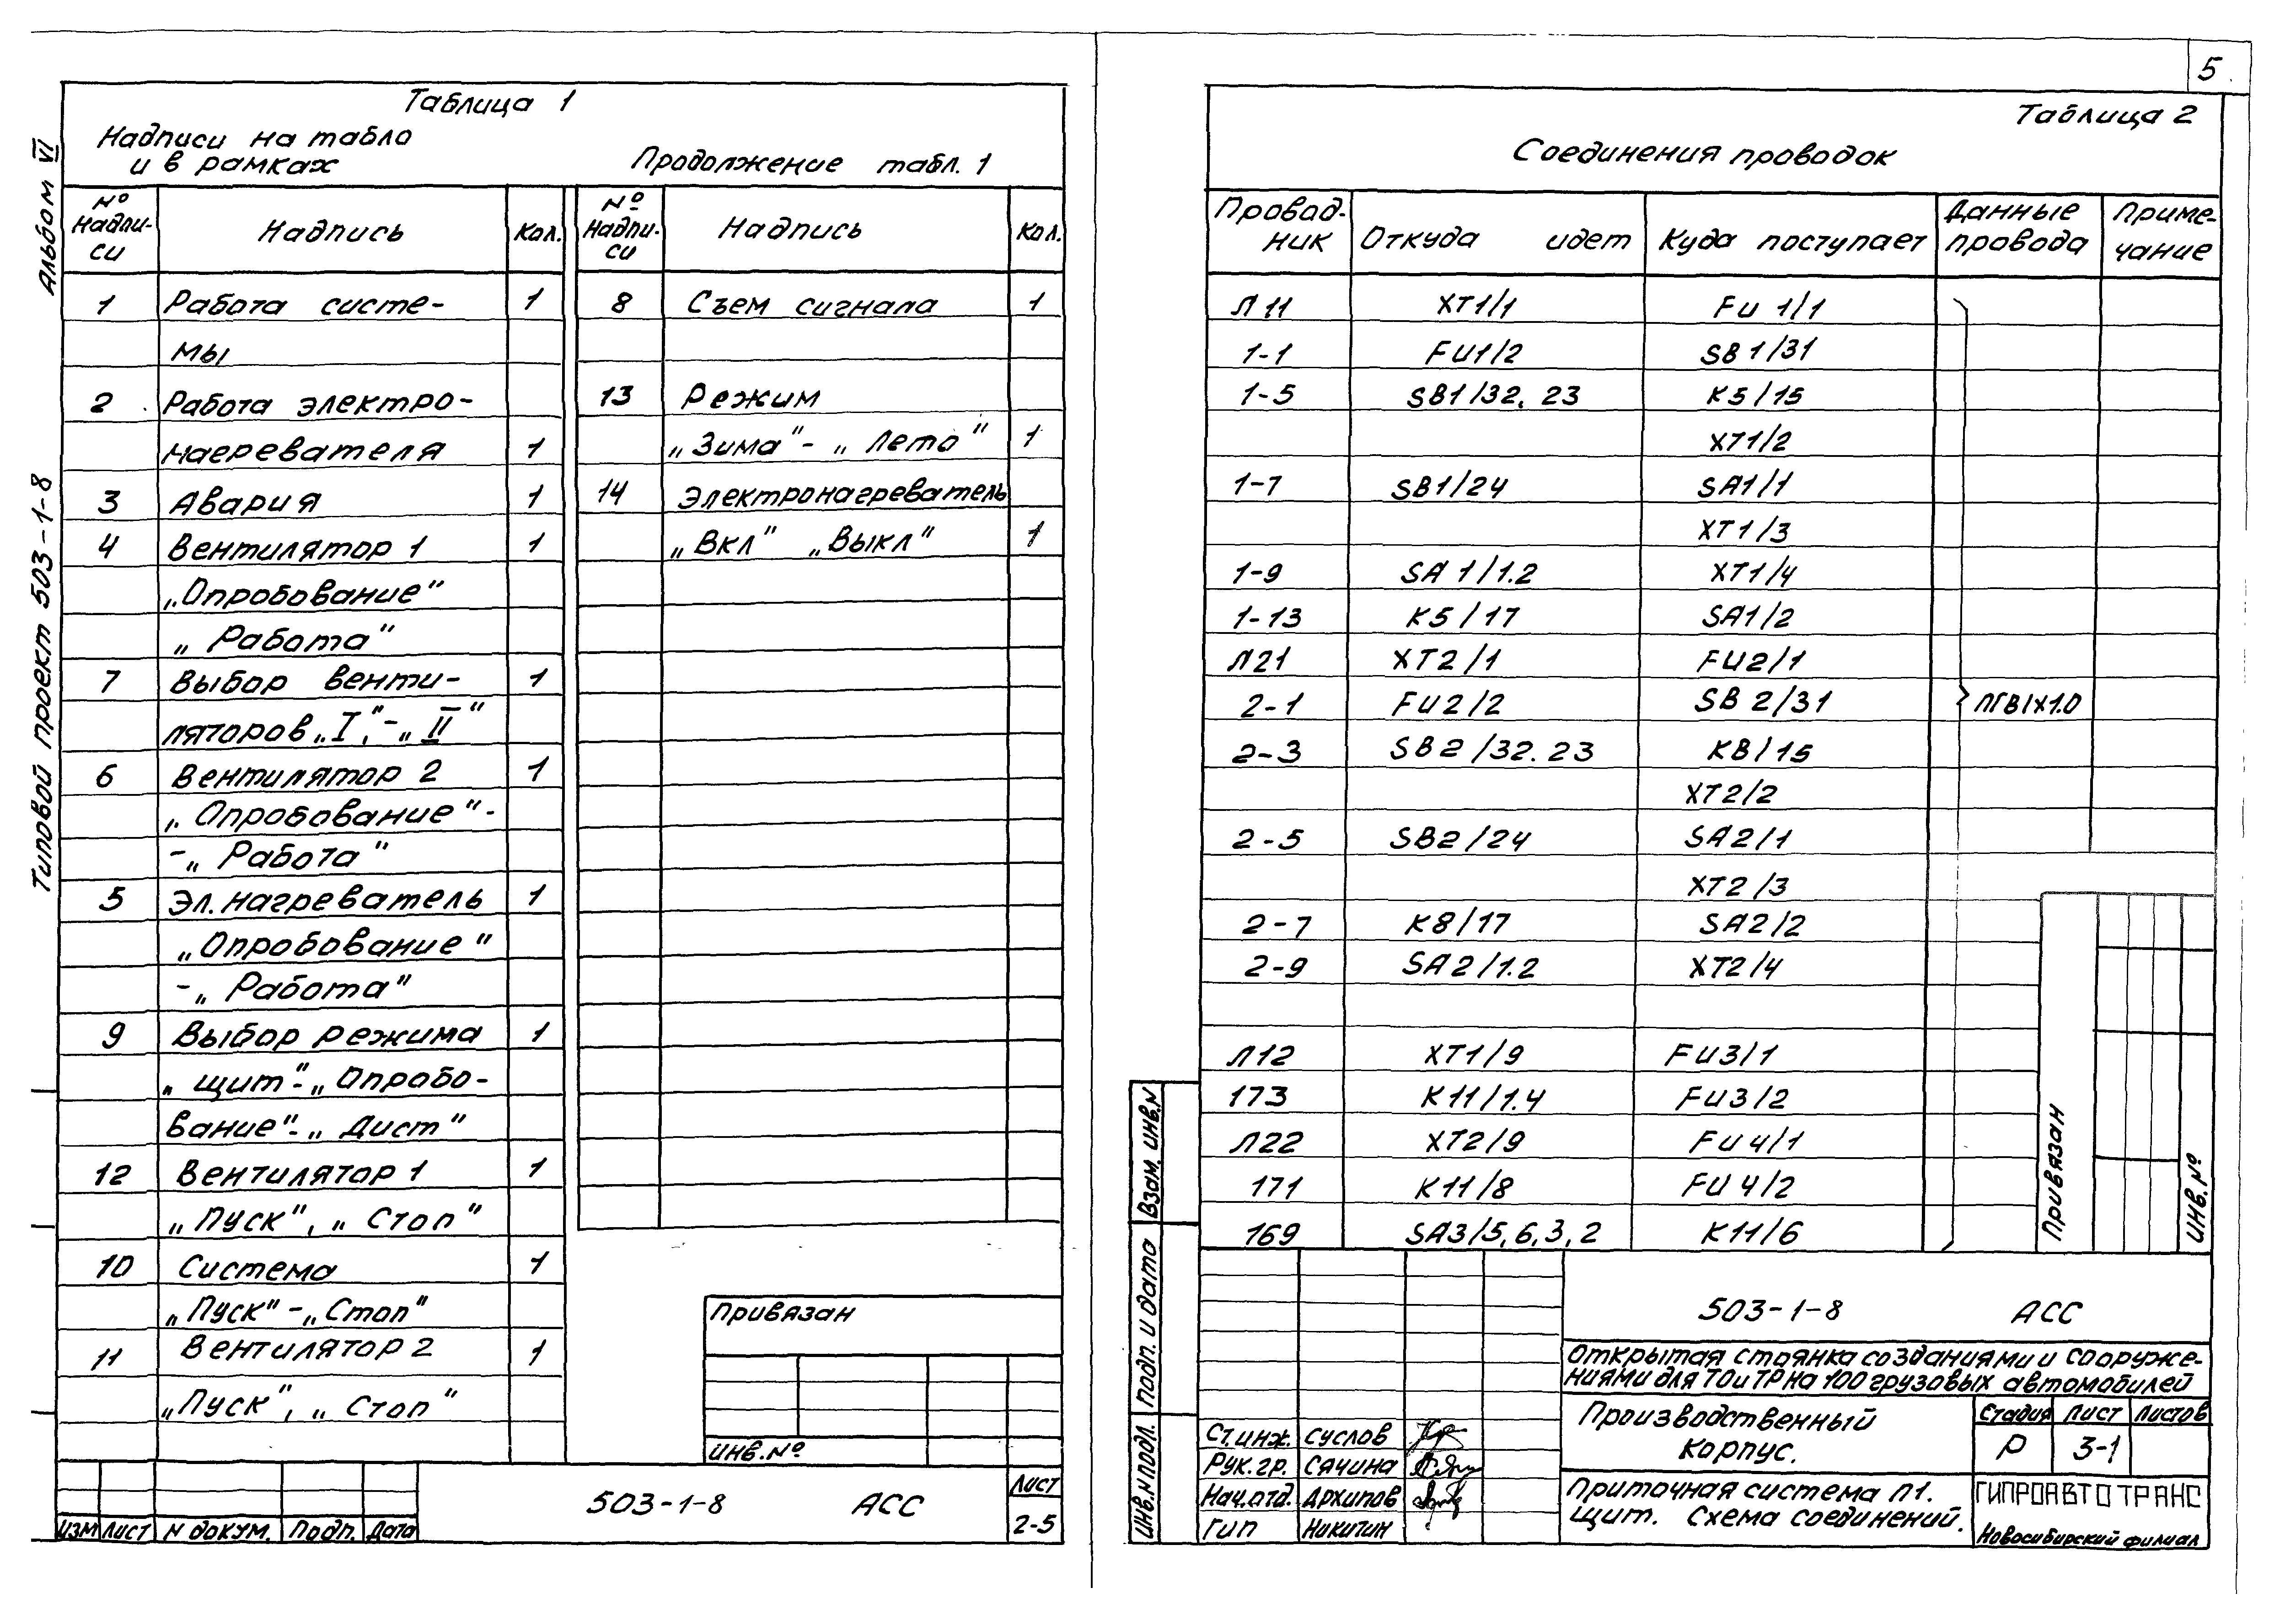 5
Альбом VI
Типовой проект 503-1-8
Таблица 1
Надписи на табло
и в рамках
Продолжение табл. 1
№ Надпи-си Надпись Кол.
1 Работа систе- 1
мы
2 Работа электро-
нагревателя 1
3 Авария 1
4 Вентилятор 1 1
„Опробование"
„Работа"
7 Выбор венти- 1
ляторов „I"-„II"
6 Вентилятор 2 1
„Опробование"-
-„Работа"
5 Эл. нагреватель 1
„Опробование"
-„Работа"
9 Выбор режима 1
„щит"-„Опробо-
вание"-„Дист"
12 Вентилятор 1 1
„Пуск", „Стоп"
10 Система 1
„Пуск"-„Стоп"
11 Вентилятор 2 1
„Пуск", „Стоп"
№ Надпи-си Надпись Кол.
8 Съем сигнала 1
13 Режим
„Зима"-„Лето" 1
14 Электронагреватель
„Вкл" „Выкл" 1
Привязан
ИНВ.№
Изм Лист N докум. Подп. Дата
503-1-8 АСС
Лист
2-5
Таблица 2
Соединения проводок
Провод-ник Откуда идет Куда поступает Данные провода Приме-чание
Л11 XT1/1 FU 1/1
1-1 FU1/2 SB1/31
1-5 SB1/32. 23 K5/15
XT1/2
1-7 SB1/24 SA1/1
XT1/3
1-9 SA1/1.2 XT1/4
1-13 K5/17 SA1/2
Л21 XT2/1 FU2/1
2-1 FU2/2 SB2/31 ПГВ1х1.0
2-3 SB2/32. 23 K8/15
XT2/2
2-5 SB2/24 SA2/1
XT2/3
2-7 K8/17 SA2/2
2-9 SA2/1.2 XT2/4
Л12 XT1/9 FU3/1
173 K11/1.4 FU3/2
Л22 XT2/9 FU4/1
171 K11/8 FU4/2
169 SA3/5,6,3,2 K11/6
Привязан
ИНВ.№
Взам. инв.N
Подп. и дата
ИНВ.N подл.
503-1-8 АСС
Открытая стоянка со зданиями и сооруже-
ниями для ТО и ТР на 100 грузовых автомобилей
Производственный
корпус.
Стадия Лист Листов
Р 3-1
Ст.инж. Суслов
Рук.гр. Сячина
Нач.отд. Архипов
Гип Никитин
Приточная система П1.
Щит. Схема соединений.
ГИПРОАВТОТРАНС
Новосибирский филиал